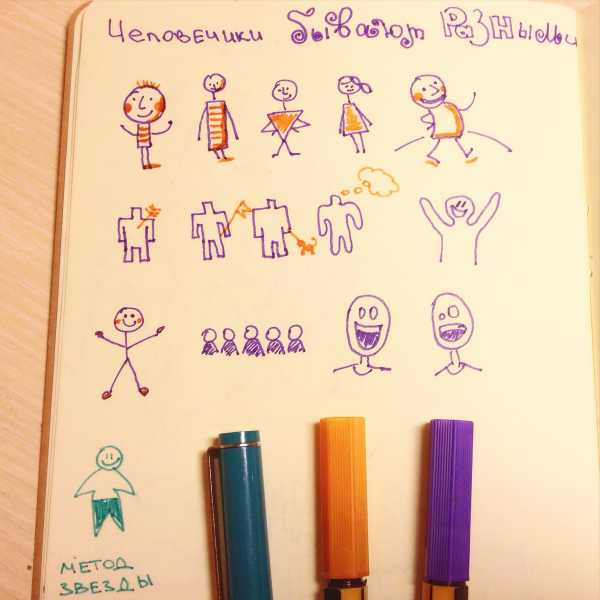 Человечики бывают разными
МЕТОД
ЗВЕЗДЫ